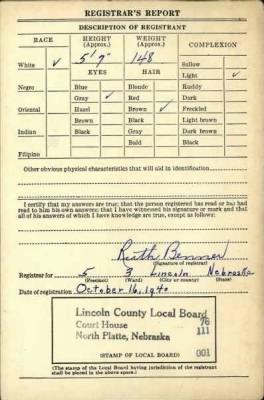 REGISTRAR'S REPORT
DESCRIPTION OF REGISTRANT
RACE HEIGHT (Approx.) WEIGHT (Approx.) COMPLEXION
White ✓ 5' 7" 148 Sallow
EYES HAIR Light ✓
Negro Blue Blonde Ruddy
Gray ✓ Red Dark
Oriental Hazel Brown ✓ Freckled
Brown Black Light brown
Indian Black Gray Dark brown
Bald Black
Filipino
Other obvious physical characteristics that will aid in identification
I certify that my answers are true; that the person registered has read or has had
read to him his own answers; that I have witnessed his signature or mark and that
all of his answers of which I have knowledge are true, except as follows:
Ruth Benner
(Signature of registrar)
Registrar for 5 3 Lincoln Nebraska
(Precinct) (Ward) (City or county) (State)
Date of registration October 16, 1940
Lincoln County Local Board
Court House 76
North Platte, Nebraska 111
001
(STAMP OF LOCAL BOARD)
(The stamp of the Local Board having jurisdiction of the registrant
shall be placed in the above space.)